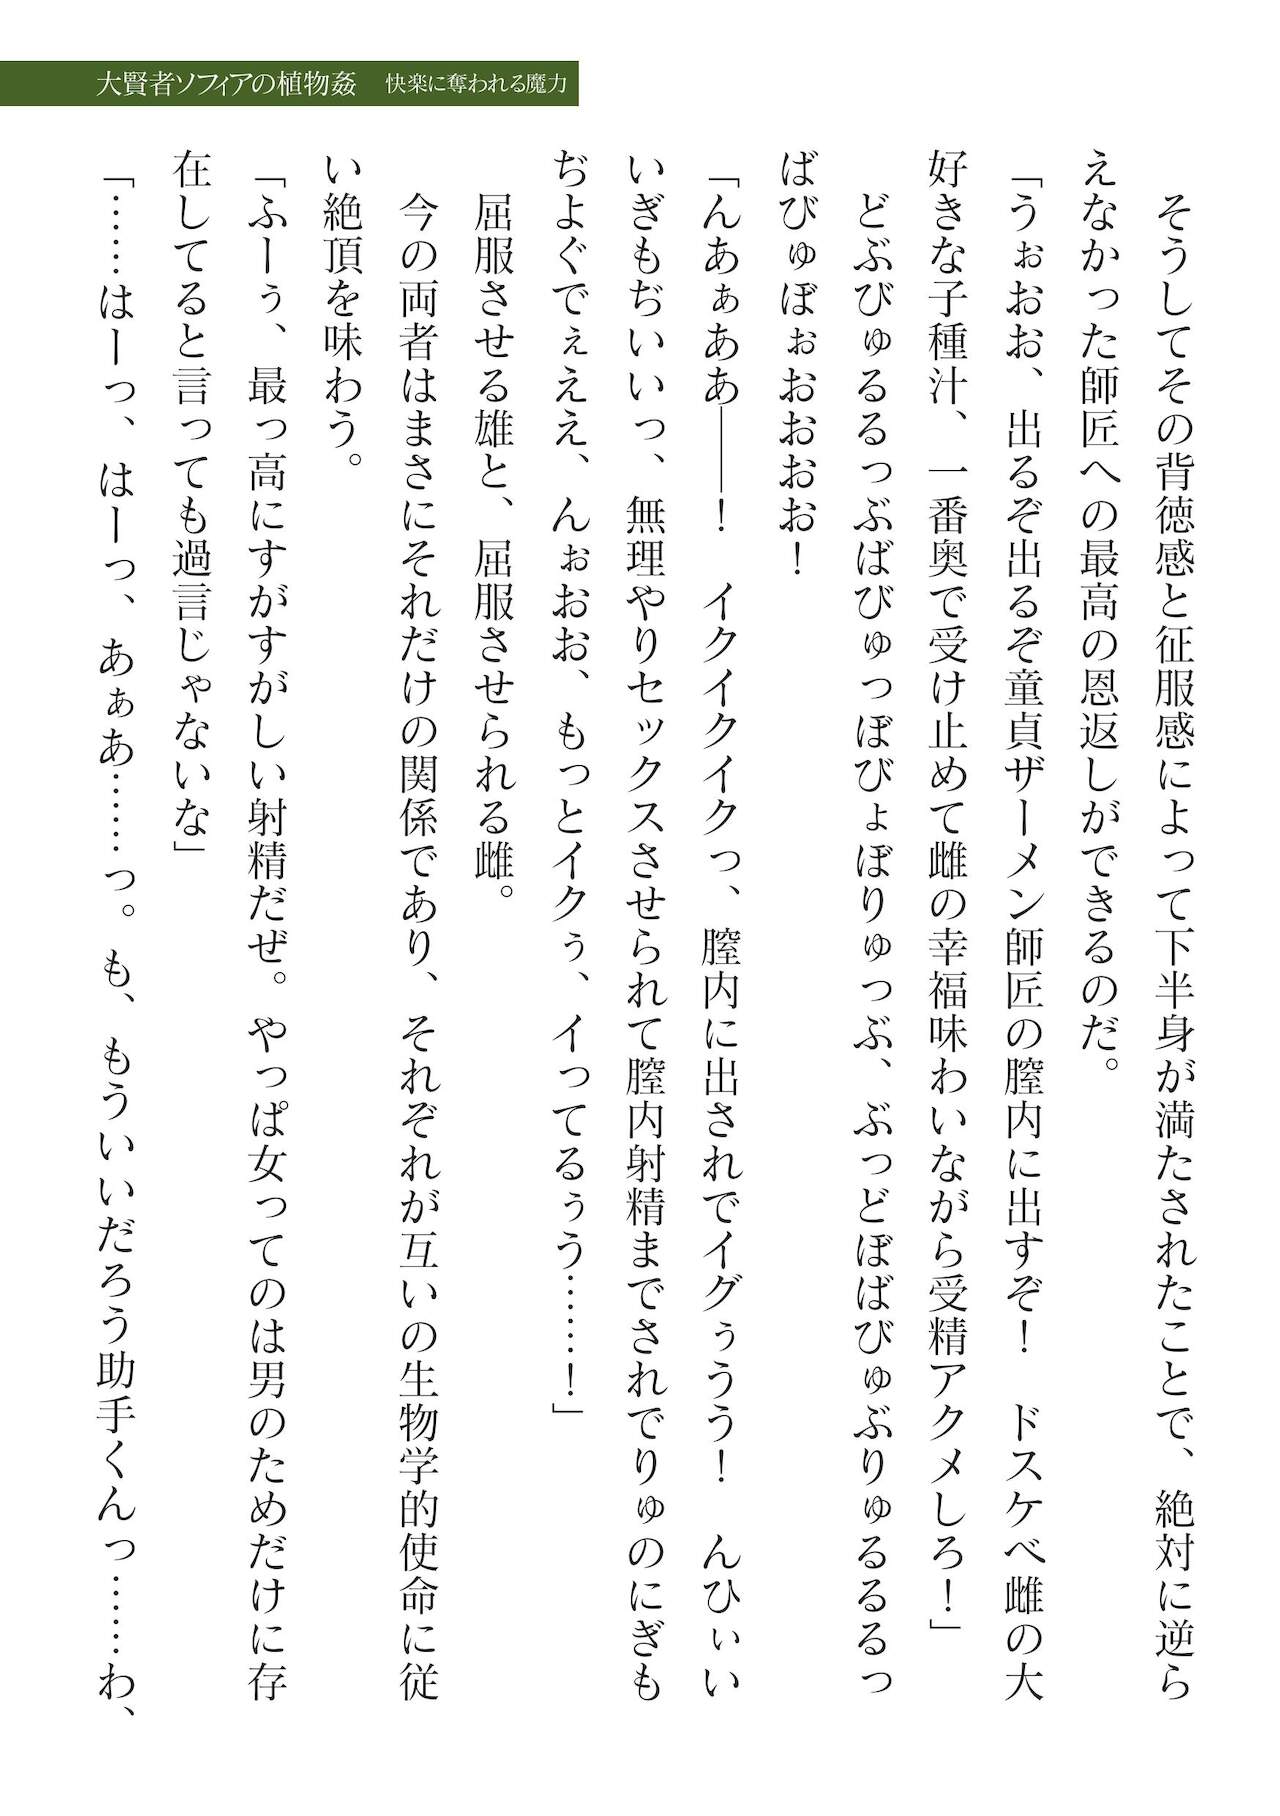 大賢者ソフィアの植物姦　快楽に奪われる魔力
　そうしてその背徳感と征服感によって下半身が満たされたことで、絶対に逆ら
えなかった師匠への最高の恩返しができるのだ。
「うぉおお、出るぞ出るぞ童貞ザーメン師匠の膣内に出すぞ！　ドスケベ雌の大
好きな子種汁、一番奥で受け止めて雌の幸福味わいながら受精アクメしろ！」
　どぶびゅるるっぶばびゅっぼびょぼりゅっぶ、ぶっどぼばびゅぶりゅるるるっ
ばびゅぼぉおおおお！
「んあぁああ――！　イクイクイクっ、膣内に出されでイグぅうう！　んひぃい
いぎもぢいいっ、無理やりセックスさせられて膣内射精までされでりゅのにぎも
ぢよぐでぇええ、んぉおお、もっとイクぅ、イってるぅう……！」
　屈服させる雄と、屈服させられる雌。
　今の両者はまさにそれだけの関係であり、それぞれが互いの生物学的使命に従
い絶頂を味わう。
「ふーぅ、最っ高にすがすがしい射精だぜ。やっぱ女ってのは男のためだけに存
在してると言っても過言じゃないな」
「……はーっ、はーっ、あぁあ……っ。も、もういいだろう助手くんっ……わ、